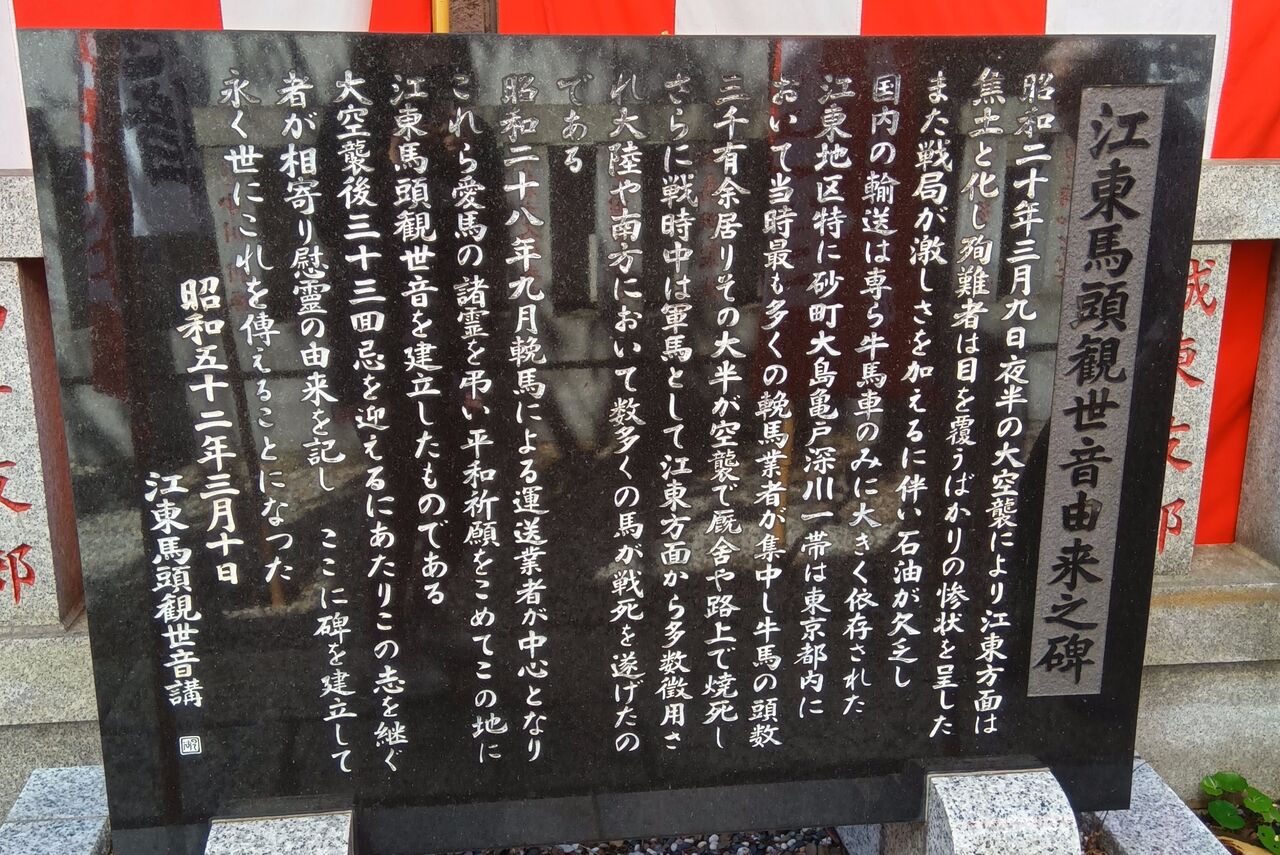 江東馬頭観世音由来之碑
昭和二十年三月九日夜半の大空襲により江東方面は
焦土と化し殉難者は目を覆うばかりの惨状を呈した
また戦局が激しさを加えるに伴い石油が欠乏し
国内の輸送は専ら牛馬車のみに大きく依存された
江東地区特に砂町大島亀戸深川一帯は東京都内に
おいて当時最も多くの輓馬業者が集中し牛馬の頭数
三千有余居りその大半が空襲で厩舎や路上で焼死し
さらに戦時中は軍馬として江東方面から多数徴用さ
れ大陸や南方において数多くの馬が戦死を遂げたの
である
昭和二十八年九月輓馬による運送業者が中心となり
これら愛馬の諸霊を弔い平和祈願をこめてこの地に
江東馬頭観世音を建立したものである
大空襲後三十三回忌を迎えるにあたりこの志を継ぐ
者が相寄り慰霊の由来を記し ここに碑を建立して
永く世にこれを傳えることになつた
昭和五十二年三月十日
江東馬頭観世音講
城東支部
支部